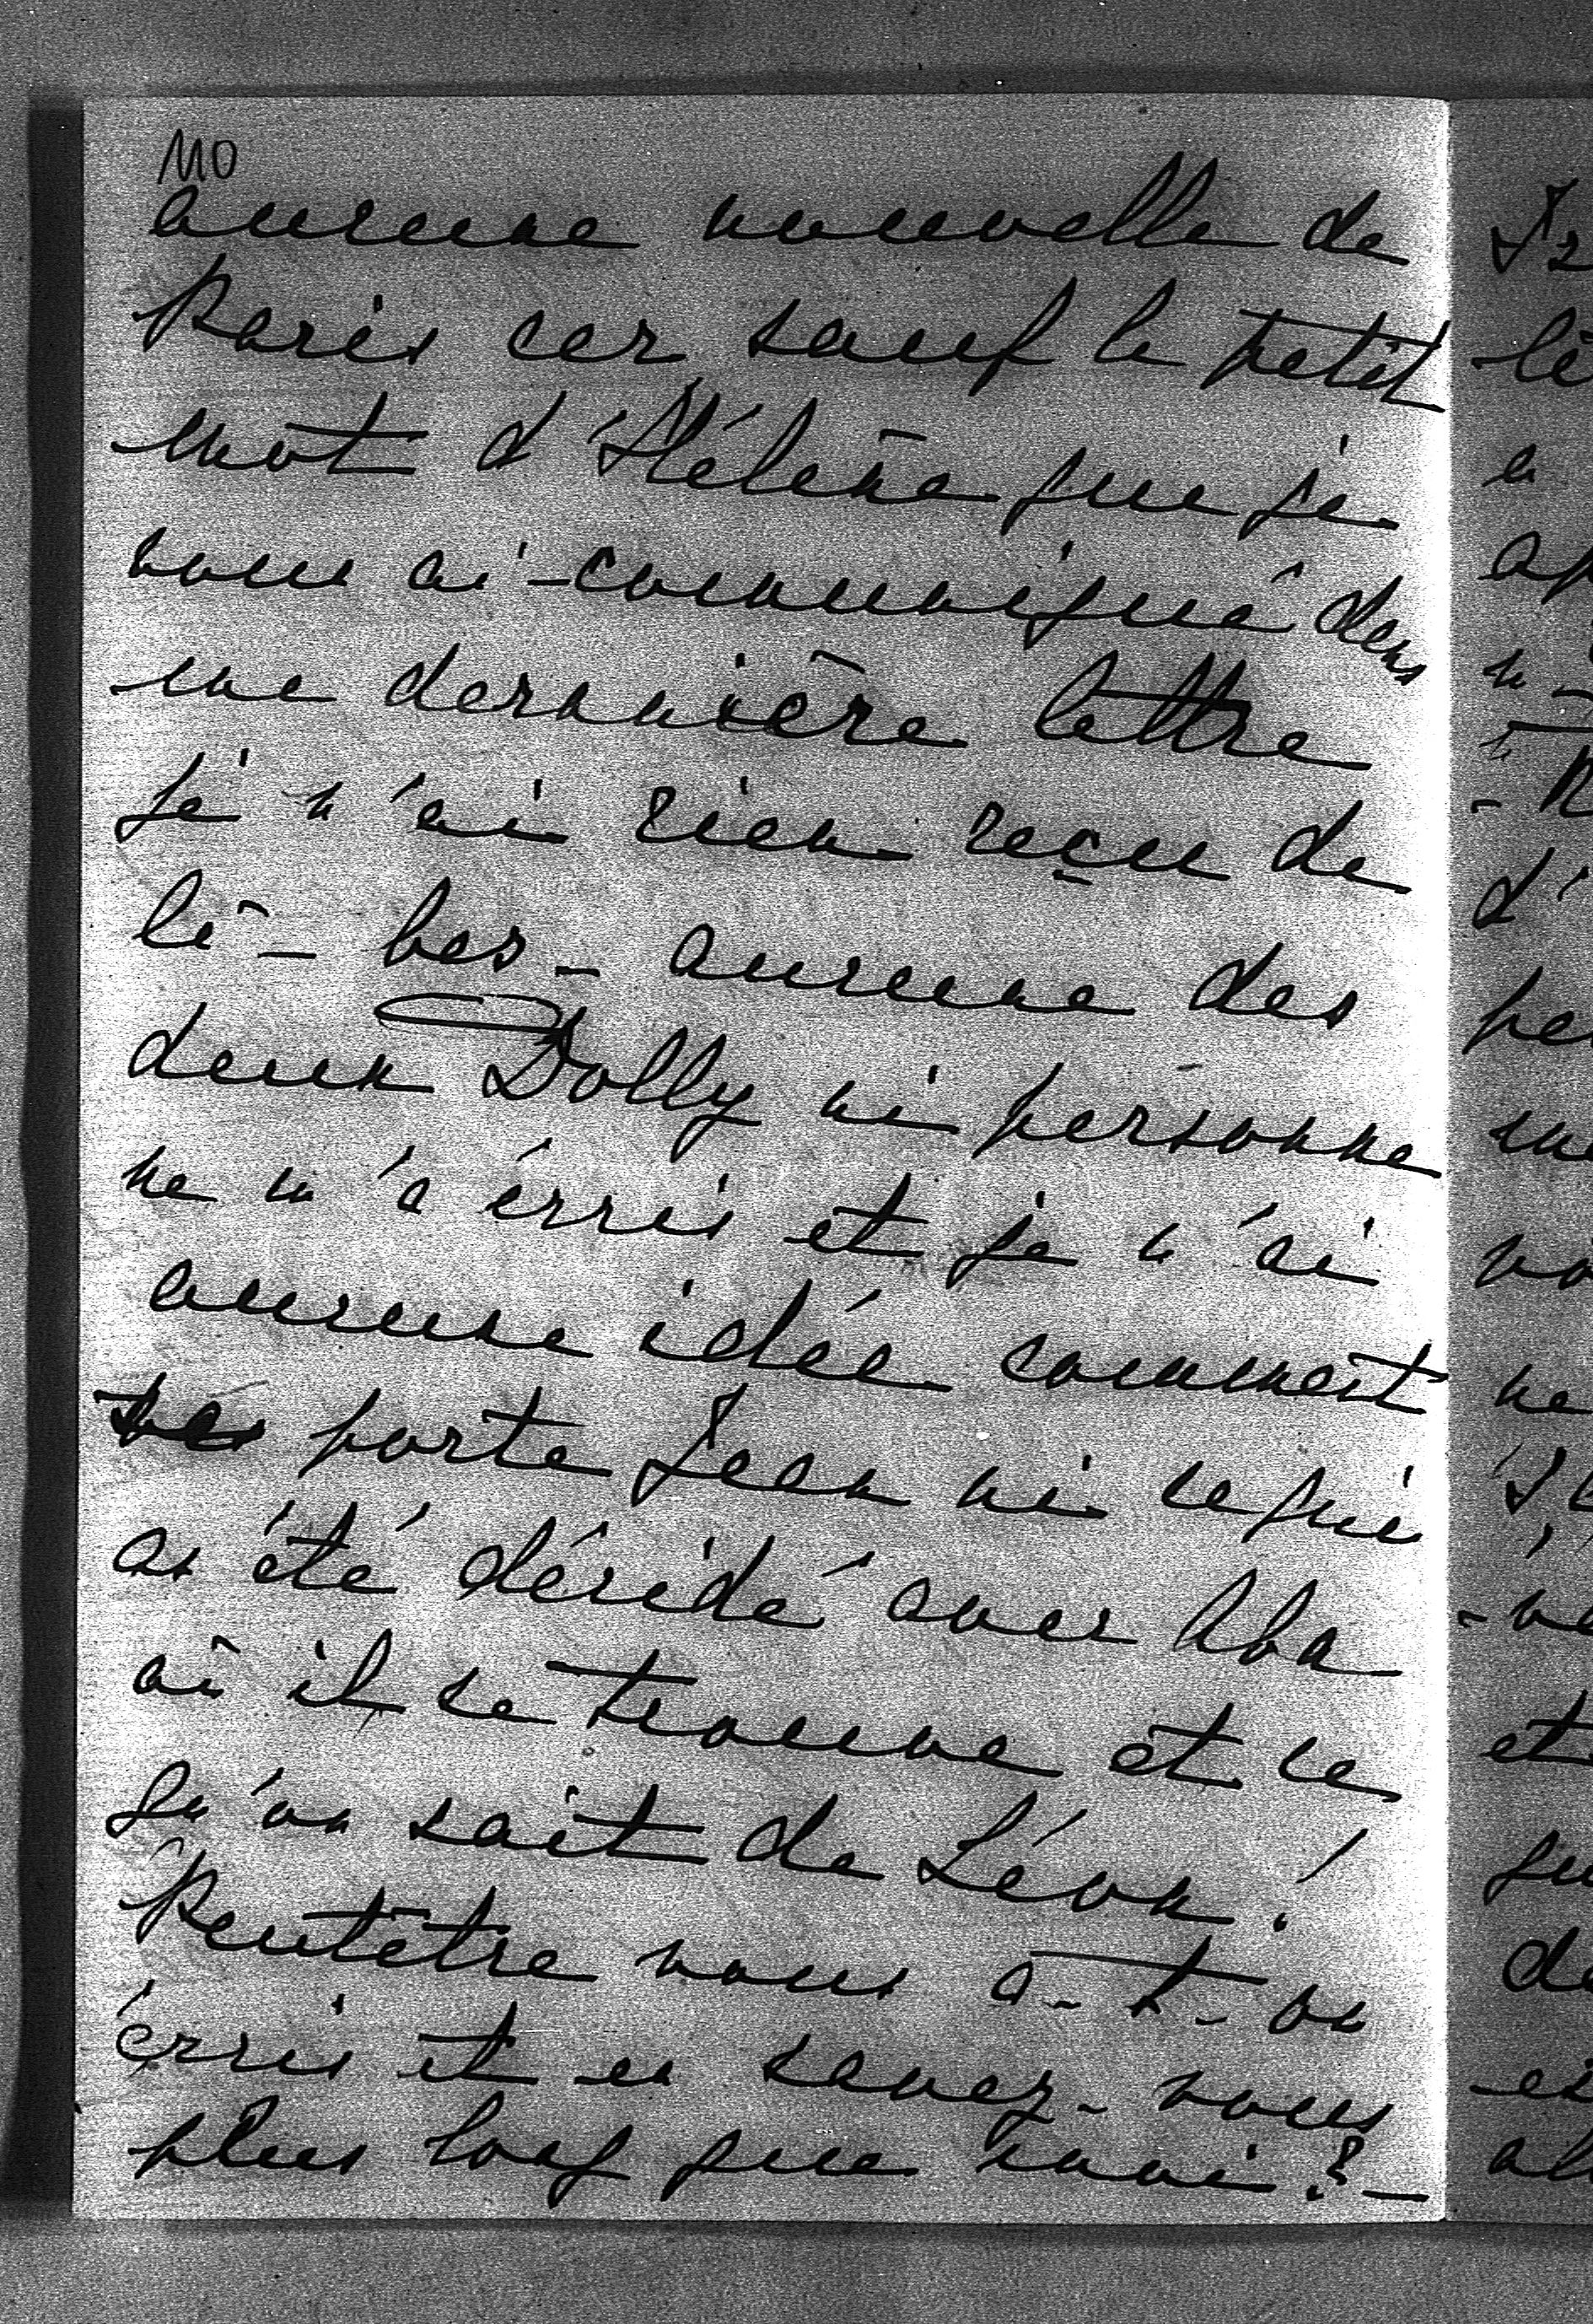 110
aucune nouvelle de
Paris car sauf le petit
mot d'Hélène que je
vous ai-communiqué dans
ma dernière lettre
je n'ai rien reçu de
là-bas - aucune des
deux Dolly ni personne
ne m'a écris et je n'ai
aucune idée comment
se porte Jean ni ce qui
as été décidé avec
où il se trouve et ce
qu'on sait de Léon!
Peutêtre vous a-t-on
écris et en savez-vous
plus long que moi? -